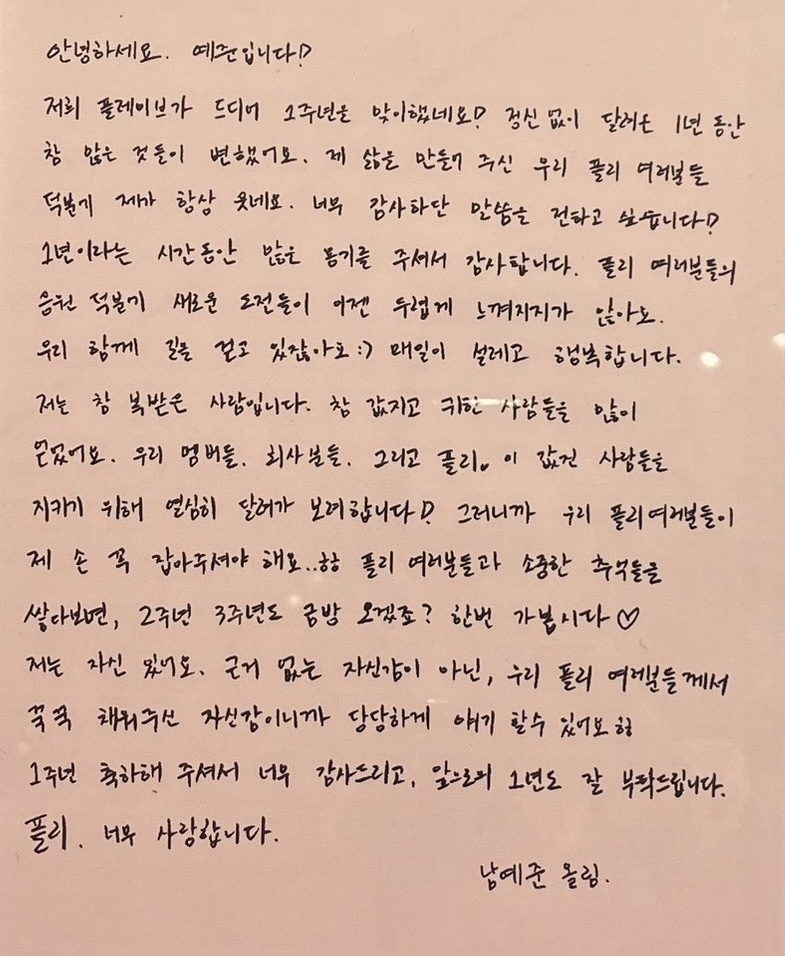 안녕하세요. 예준입니다!
저희 플레이브가 드디어 1주년을 맞이했네요! 정신없이 달려온 1년 동안
참 많은 것들이 변했어요. 제 삶을 만들어 주신 우리 플리 여러분들
덕분에 제가 항상 웃네요. 너무 감사하단 말씀을 전하고 싶습니다!
1년이라는 시간동안 많은 용기를 주셔서 감사합니다. 플리 여러분들의
응원 덕분에 새로운 도전들이 이젠 두렵게 느껴지지가 않아요.
우리 함께 길을 걷고 있잖아요:) 매일이 설레고 행복합니다.
저는 참 복받은 사람입니다. 참 값지고 귀한 사람들을 많이
얻었어요. 우리 멤버들. 회사분들. 그리고 플리. 이 값진 사람들을
지키기 위해 열심히 달려가 보려합니다! 그러니까 우리 플리여러분들이
제 손 꼭 잡아주셔야 해요..ㅎㅎ 플리 여러분들과 소중한 추억들을
쌓다보면, 2주년 3주년도 금방 오겠죠? 한번 가봅시다♡
저는 자신 있어요. 근거 없는 자신감이 아닌, 우리 플리 여러분들께서
꾹꾹 채워주신 자신감이니까 당당하게 얘기 할수 있어요ㅎㅎ
1주년 축하해 주셔서 너무 감사드리고, 앞으로의 1년도 잘 부탁드립니다.
플리. 너무 사랑합니다.
남예준 올림.